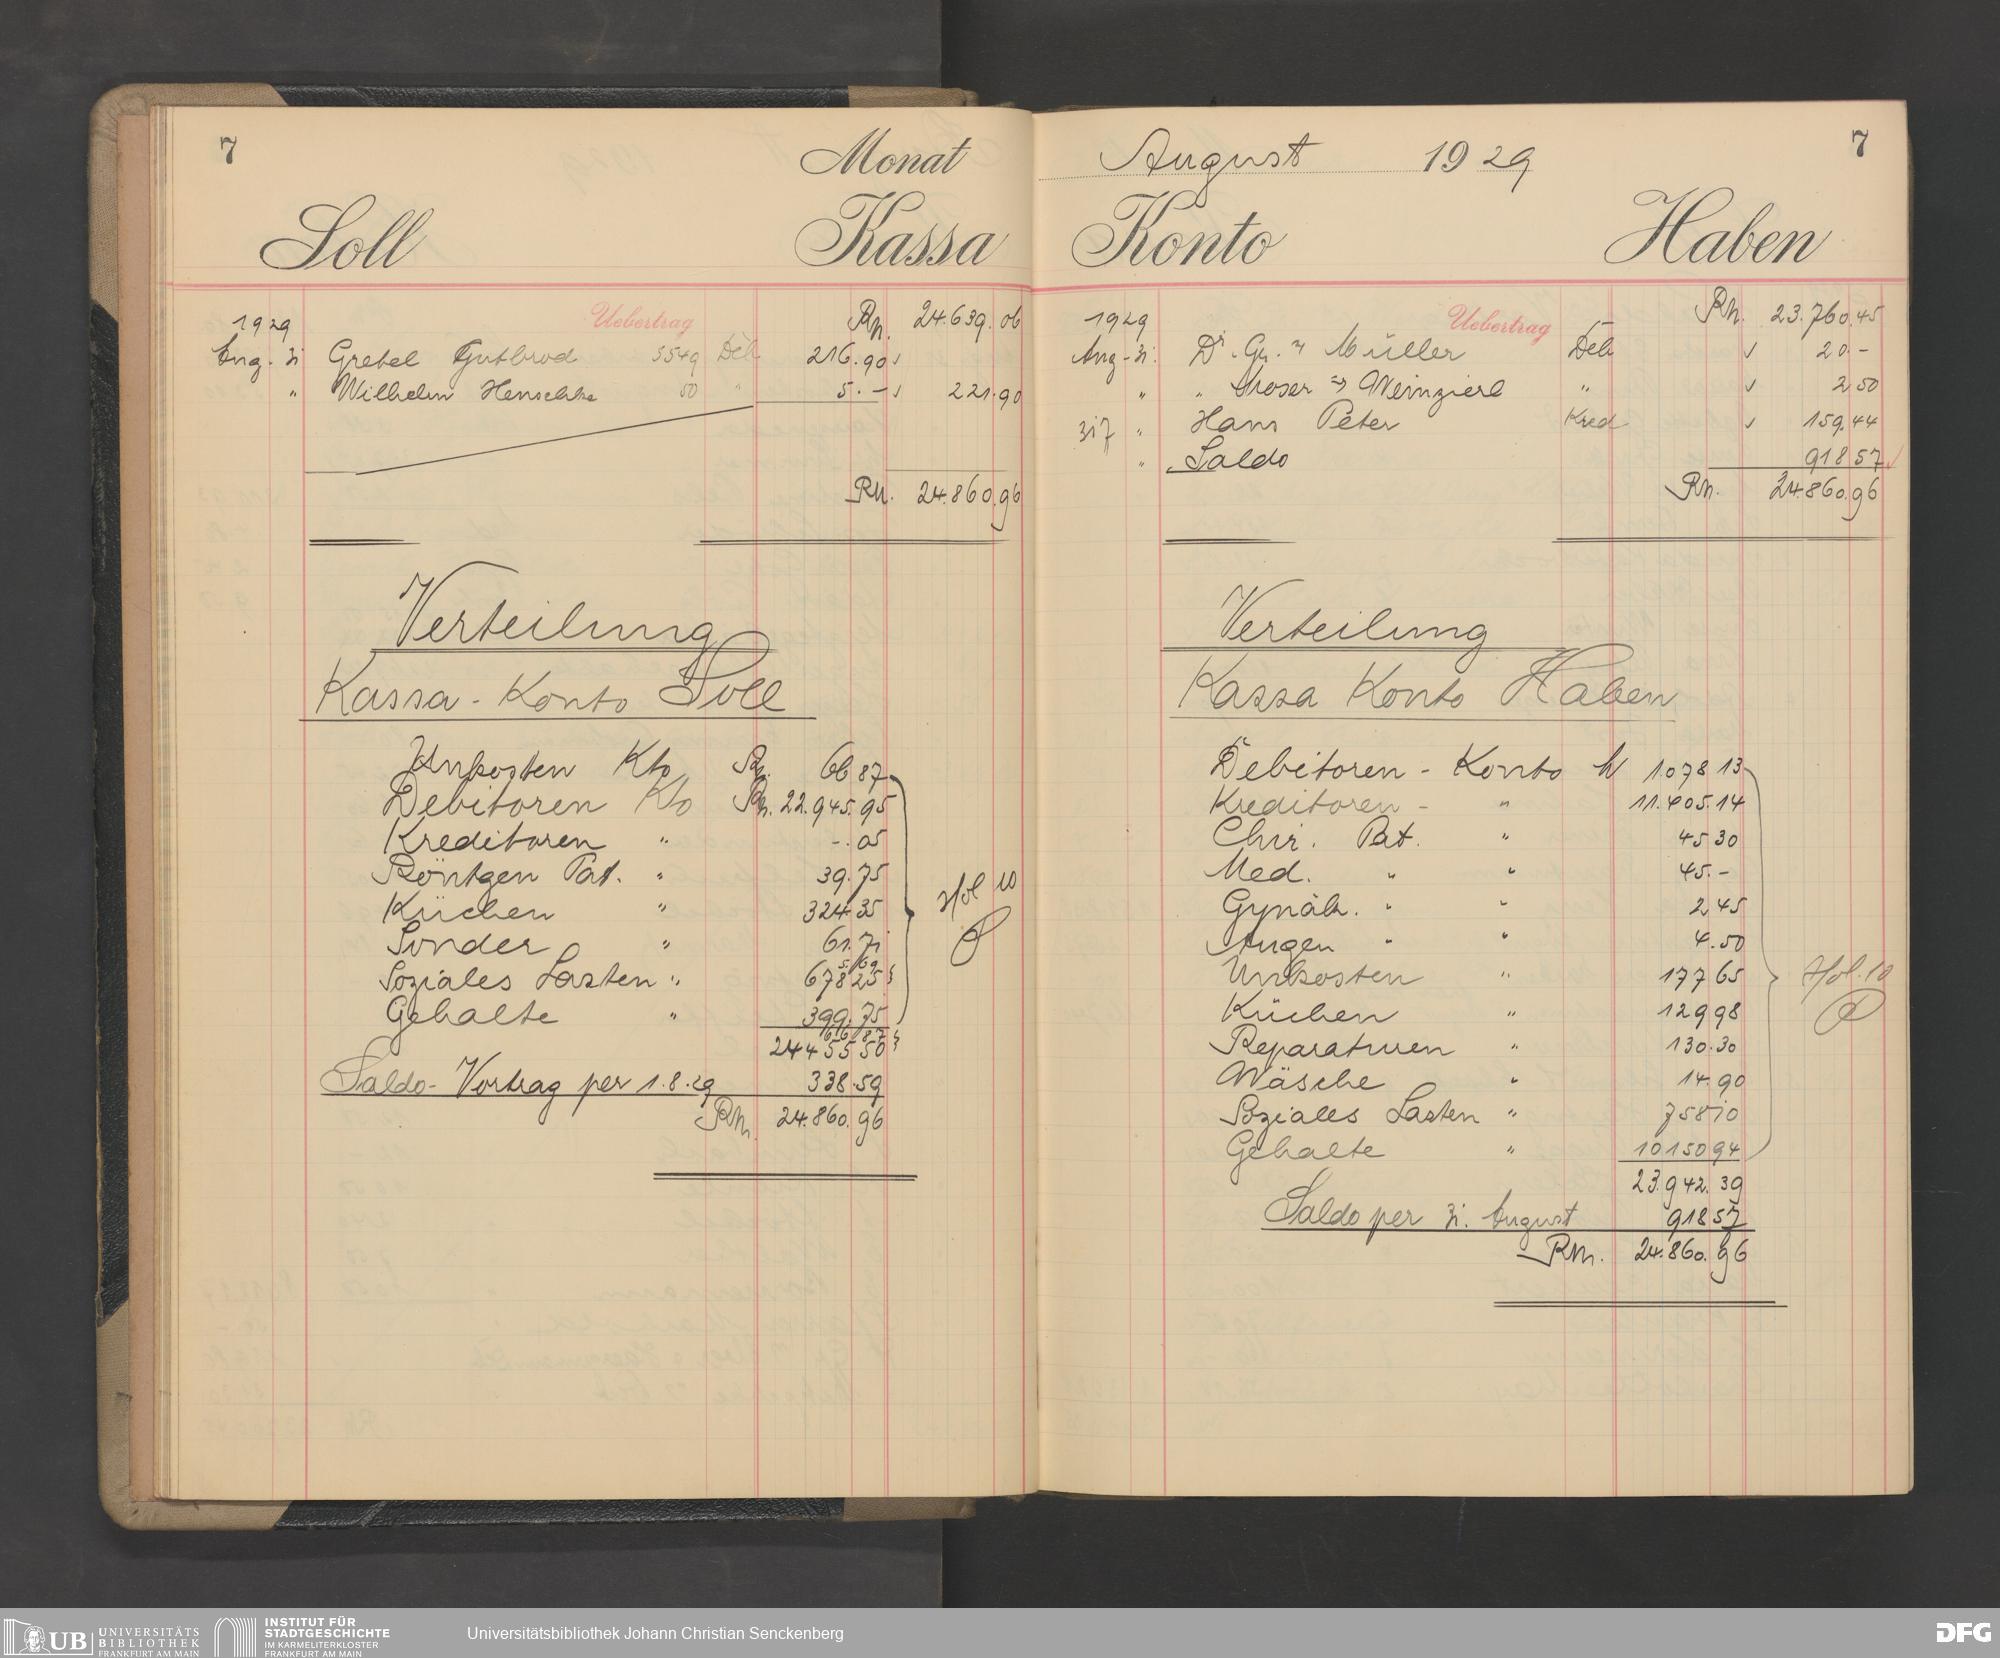 7
Monat
Soll Kassa
1929 Uebertrag Rm. 24.639.06
Aug. 31 Gretel Gutbrod 3549 Deb 216.90
" Wilhelm Henschke 50 " 5.- 221.90
Rm. 24.860.96
Verteilung
Kassa-Konto Soll
Unkosten Kto Rm. 66 87
Debitoren Kto Rm. 22.945.95
Kreditoren " -.05
Röntgen Pat. " 39.75
Küchen " 324 35
Sonder " 61.71
5/69
Soziales Lasten " 678 25
Gehalte " 399.75
66 87
24455 50
Saldo-Vortrag per 1.8.29 338.59
Rm. 24.860.96
Hbl 10
August 1929
7
Konto Haben
1929 Uebertrag Rm. 23.760.45
Aug-31. Dr. Gr. Müller Deb 20.-
" " Moser Weinzierl " 2 50
317 " Hans Peter Kred 159.44
" Saldo 918 57
Rm. 24.860.96
Verteilung
Kassa Konto Haben
Debitoren-Konto 1.078 13
Kreditoren- " 11.405.14
Chir. Pat. " 45 30
Med. " " 45.-
Gynäk. " " 2 45
Augen " " 4.50
Unkosten " 177 65
Küchen " 129 98
Reparaturen " 130.30
Wäsche " 14.90
Soziales Lasten " 758 10
Gehalte " 10150 94
23.942.39
Saldo per 31. August 918 57
Rm. 24.860.96
Hbl. 10
UB UNIVERSITÄTS
BIBLIOTHEK
FRANKFURT AM MAIN
INSTITUT FÜR
STADTGESCHICHTE
IM KARMELITERKLOSTER
FRANKFURT AM MAIN
Universitätsbibliothek Johann Christian Senckenberg
DFG